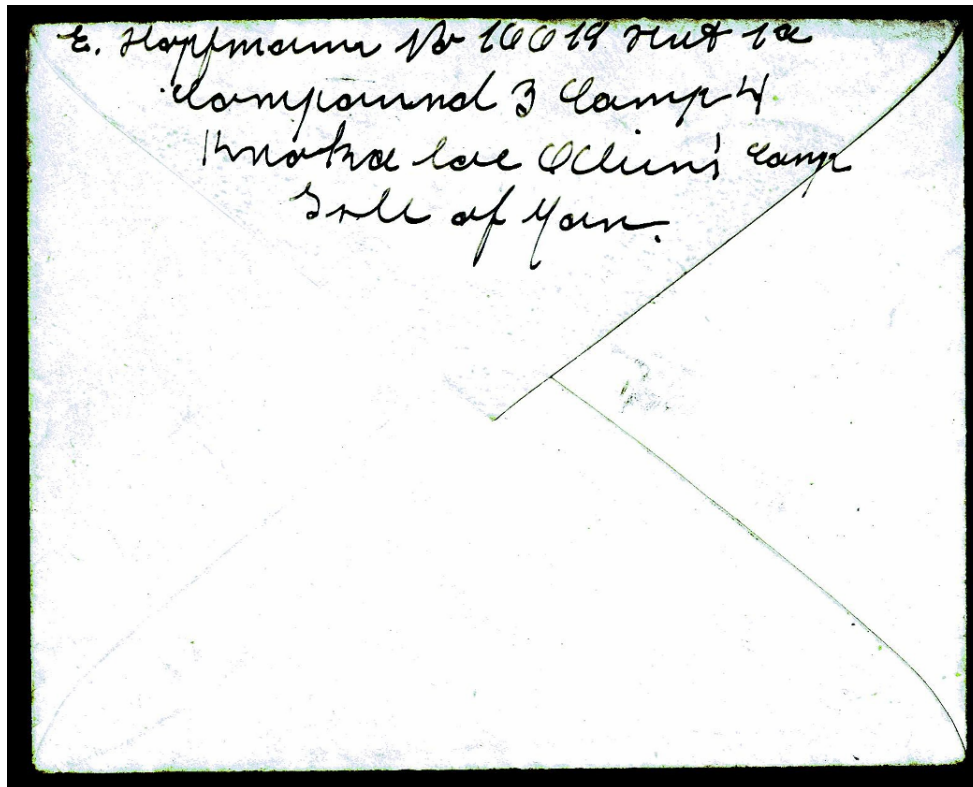 E. Hoffmann No 16619 Hut 1a
Compound 3 Camp 4
Knokaloe Alien's Camp
Isle of Man.